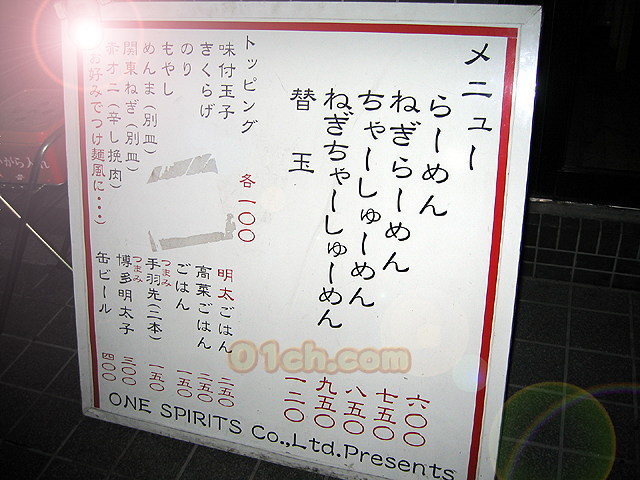 メニュー
らーめん 六〇〇
ねぎらーめん 七五〇
ちゃーしゅーめん 八五〇
ねぎちゃーしゅーめん 九五〇
替玉 一二〇
トッピング 各一〇〇
味付玉子
きくらげ
のり
もやし
めんま(別皿)
関東ねぎ(別皿)
赤オニ(辛し挽肉)
お好みでつけ麺風に・・・)
明太ごはん 二五〇
高菜ごはん 二五〇
ごはん 一五〇
つまみ 手羽先(二本) 一五〇
つまみ 博多明太子 三〇〇
缶ビール 四〇〇
ONE SPIRITS Co.,Ltd.Presents
01ch.com